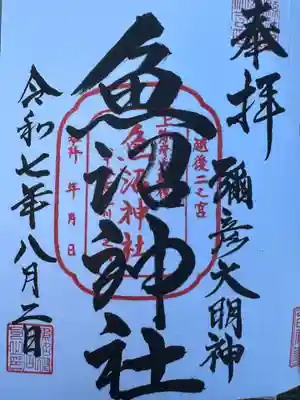 奉拝
彌彦大明神
魚沼神社
越後二之宮
魚沼神社
参拝 年 月 日
令和七年八月二日